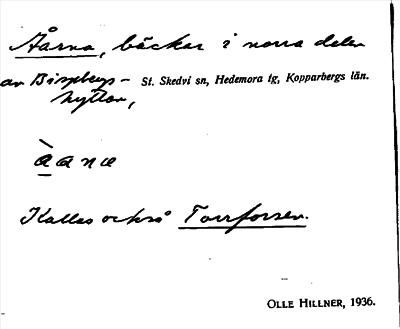 Åarna, bäckar i norra delen
av Bispbergs- St. Skedvi sn, Hedemora tg, Kopparbergs län.
hyttan,
àana
Kallas också Torrforsen.
OLLE HILLNER, 1936.